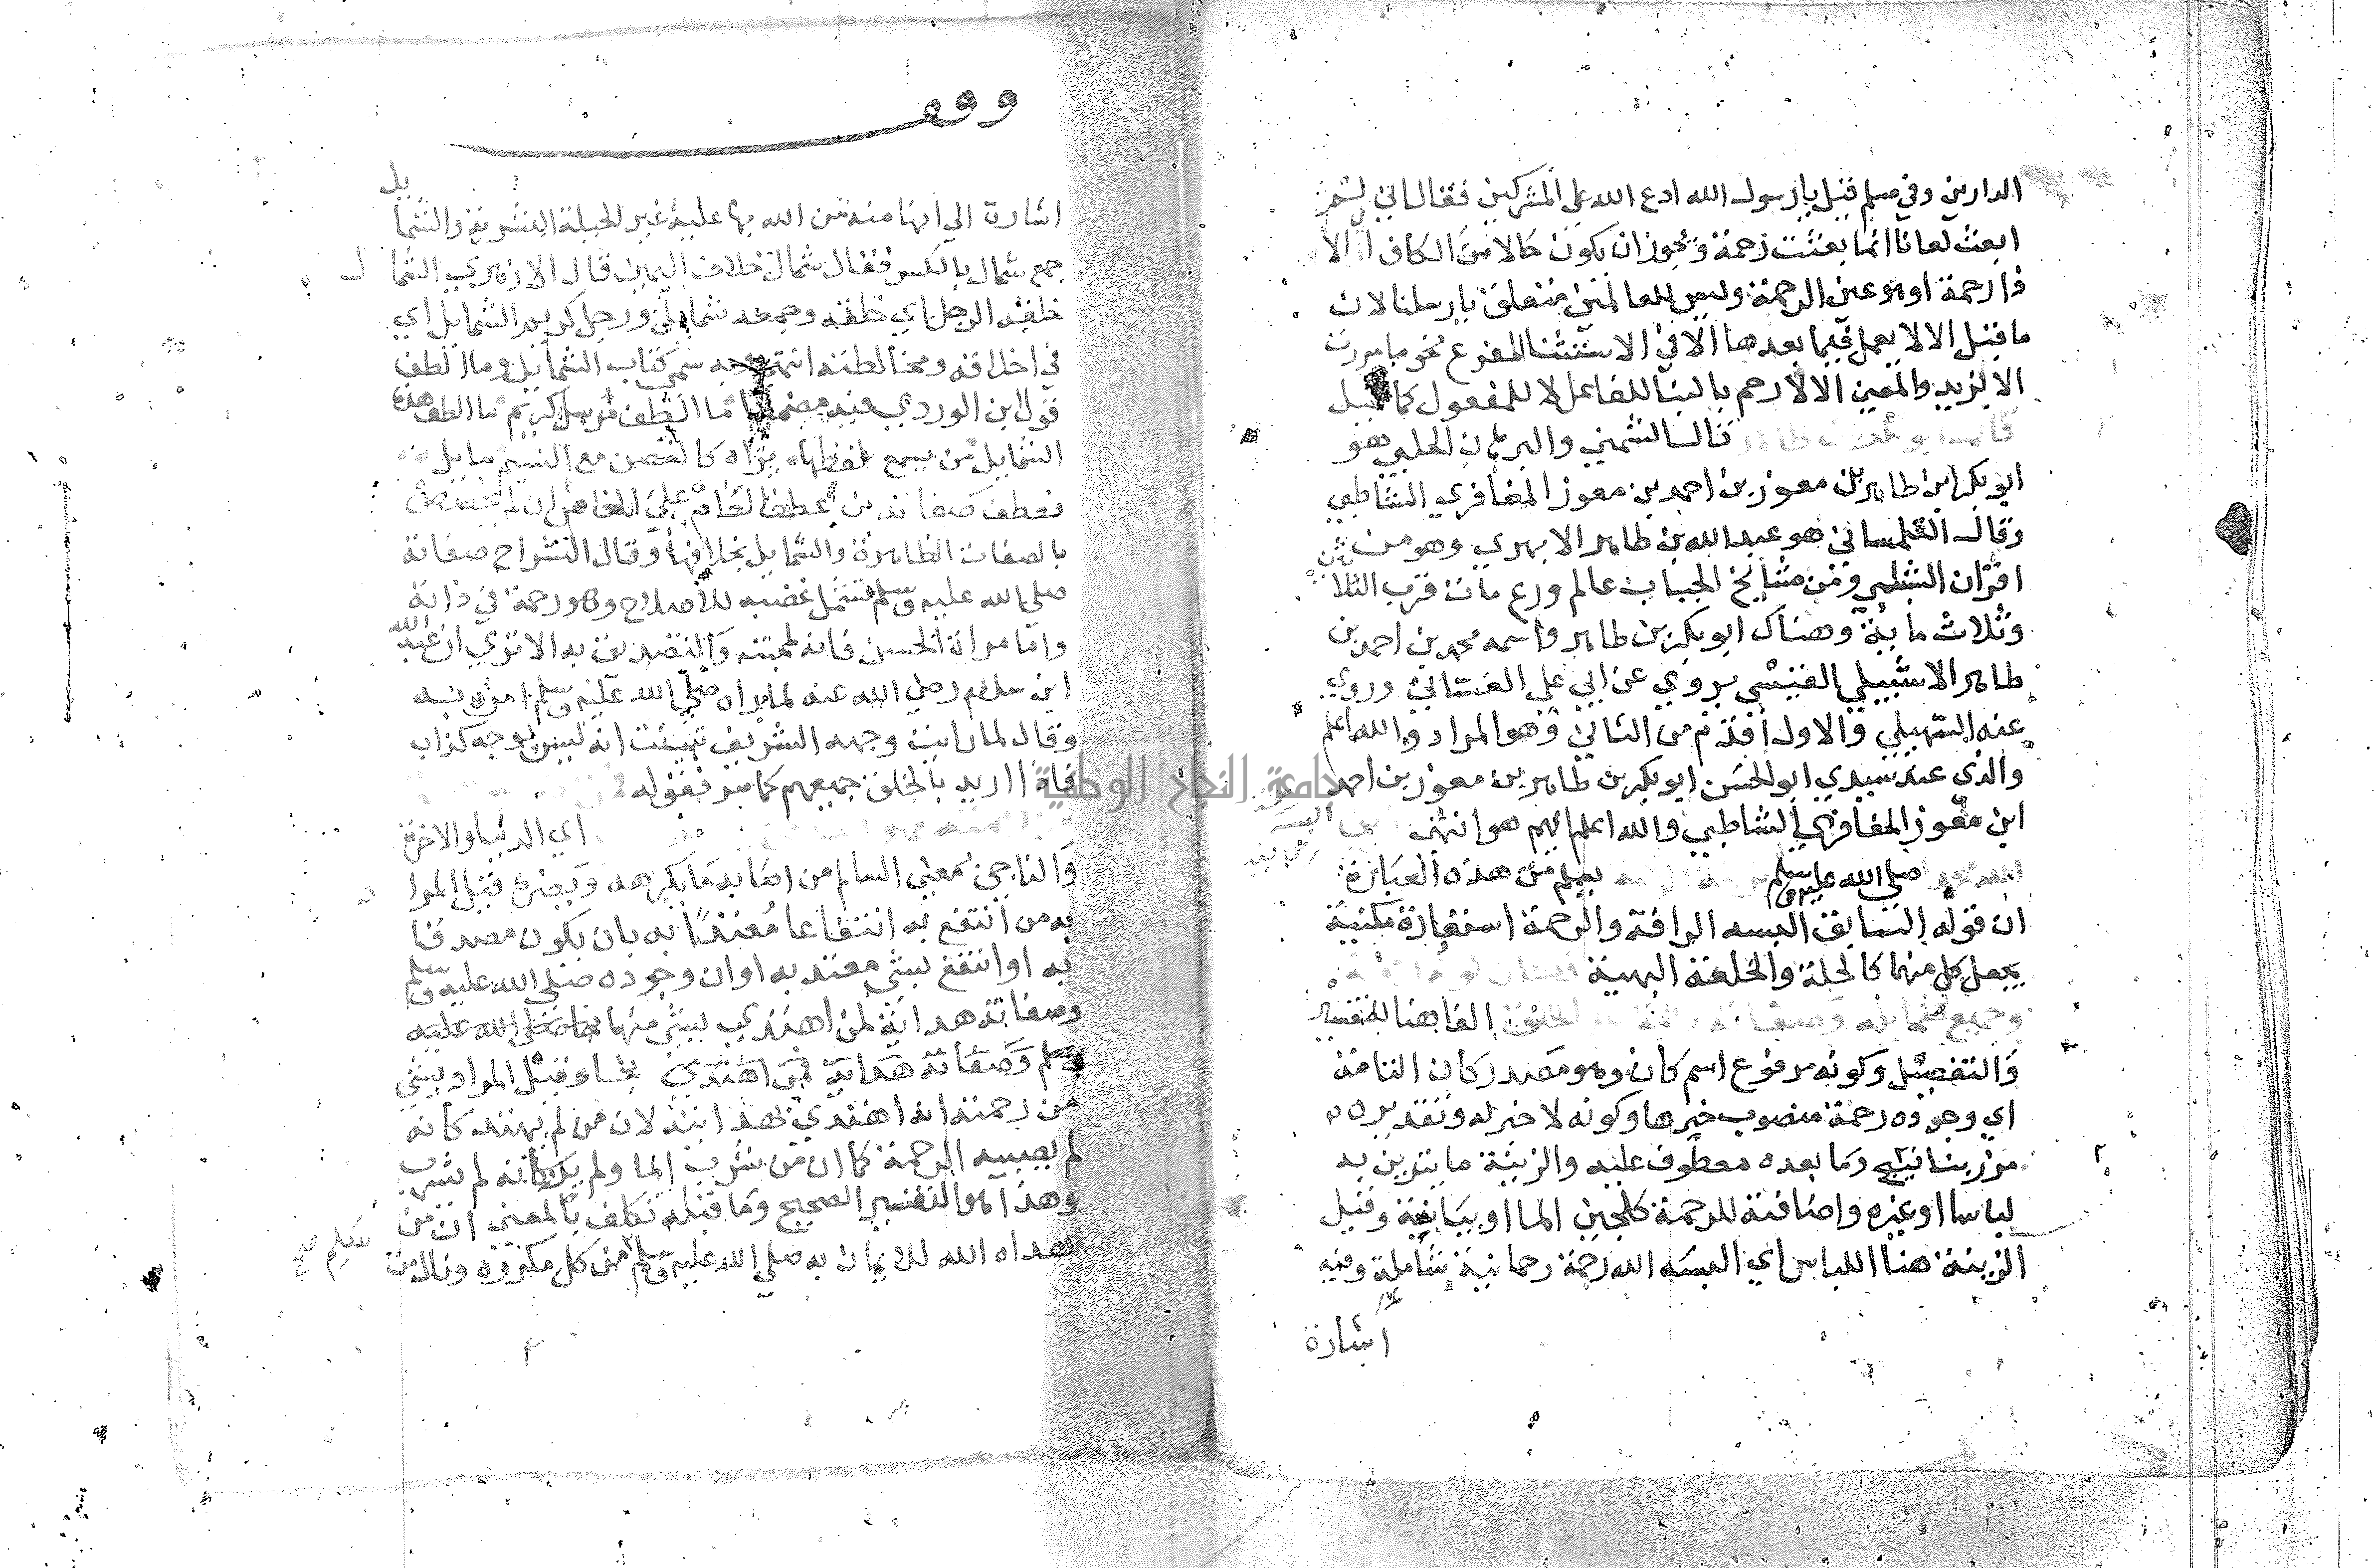 الدارين وفي مسلم قيل يا رسول الله ادع الله على المشركين فقال اني لم
ابعث لعانا انما بعثت رحمة ويجوز ان يكون حالا من الكاف الا
ذا رحمة او هو عين الرحمة وليس للعالمين متعلق بارسلنا لان
ما قبل الا لا يعمل فيما بعدها الا في الاستثنا المفرغ نحو ما مررت
الا بزيد والمعين الا لا رحم بالبنا للفاعل لا للمفعول كما قيل
قال الشمني والبرهان الحلبي هو
ابو بكر ابن طاهر بن معوز بن احمد بن معوز المغافري الشاطبي
وقال التلمساني هو عبد الله بن طاهر الابهري وهو من
اقران الشبلي ومن مشايخ الجبات عالم ورع مات قرب الثلاثين
وثلاث ماية وهناك ابو بكر بن طاهر واسمه محمد بن احمد بن
طاهر الاشبيلي القيسي يروي عن ابي علي الغساني وروي
عنه السهيلي والاول اقدم من الثاني وهو المراد والله اعلم
والذي عند سيدي ابو الحسن ابو بكر بن طاهر بن معوز بن احمد
ابن معوز المغافري الشاطبي والله اعلم ايهم هو انتهى
صلى الله عليه وسلم يعلم من هذه العبارة
ان قوله السابق البسه الرافة والرحمة استعارة مكنية
بجعل كل منهما كالحلة والخلعة البهية
وجميع شمايله وصفاته رحمة على الخلق الفا هنا للتفسير
والتفصيل وكونه مرفوع اسم كان وهو مصدر كان التامة
اي وجوده رحمة منصوب خبرها وكونه لا خبر له وتقديره
من زينا وما بعده معطوف عليه والزينة ما يتزين به
لباسا او غيره واضافته للرحمة كلجين الما او بيانية وقيل
الزينة هنا اللباس اي البسه الله رحمة رحمانية شاملة وفيه
اشارة
وقف
اشارة الي انها منه من الله بها عليه غير الجبلة البشرية والشمايل
جمع شمال بالكسر فقال شمال خلاف اليمين قال الازهري الشمال
خلقة الرجل اي خلقه وجمعه شمايل ورجل كريم الشمايل اي
في اخلاقه ومخالطته انتهى وبه سمي كتاب الشمايل وما الطف
قول ابن الوردي فيه مضمنا ما الطف مرسل كريم ما الطف هذه
الشمايل من يسمع لفظها يراه كالغصن مع النسيم مايل
فعطف صفاته من عطف العام على الخاص ان لم يخصص
بالصفات الظاهرة والشمايل بخلافها وقال الشراح صفاته
صلى الله عليه وسلم تشمل غضبه للاصلاح وهو رحمة في ذاته
واما مراة الحسن فانه لمحبته والتصديق به الا تري ان عبد الله
ابن سلام رضي الله عنه لما راه صلى الله عليه وسلم امن به
وقال لما رايت وجهه الشريف تبينت انه ليس بوجه كذاب
فاذا اريد بالخلق جميعهم كما مر فقوله
اي الدنيا والاخرة
والناجي بمعنى السالم من اصابه ما يكرهه ويضره قيل المراد
به من انتفع به انتفاعا معتدا به بان يكون مصدقا
به او انتفع بشي معتد به او ان وجوده صلى الله عليه وسلم
وصفاته هداية لمن اهتدي بشي منها صلى الله عليه
وسلم وصفاته هداية لمن اهتدي نجا وقيل المراد بشي
من رحمته انه اهتدي بهدايته لان من لم يهتد كانه
لم يصبه الرحمة كما ان من شرب الما ولم يرو كانه لم يشرب
وهذا هو التفسير الصحيح وما قبله تكلف بالمعني ان من
هداه الله للايمان به صلى الله عليه وسلم من كل مكروه ونال من
جامعة النجاح الوطنية